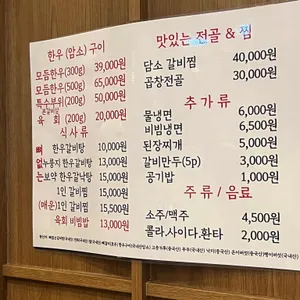 한우 (암소) 구이
모듬한우(300g) 39,000원
모듬한우(500g) 65,000원
특수부위(200g) 50,000원
육 회 (200g) 20,000원
식사류
뼈없는
한우갈비탕 10,000원
누룽지 한우갈비탕 13,000원
보약 한우갈낙탕 15,000원
1인 갈비찜 15,000원
(매운)1인 갈비찜 15,500원
육회 비빔밥 13,000원
맛있는 전골 & 찜
담소 갈비찜 40,000원
곱창전골 30,000원
추가류
물냉면 6,000원
비빔냉면 6,500원
된장찌개 5,000원
갈비만두(5p) 3,000원
공기밥 1,000원
주류 / 음료
소주/맥주 4,500원
콜라.사이다.환타 2,000원